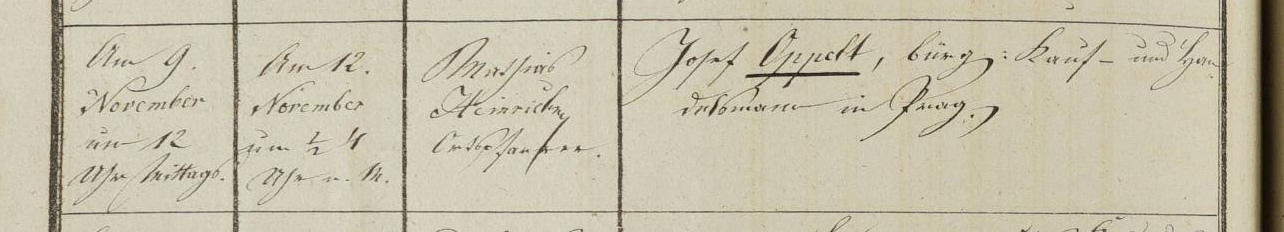 Am 9.
November
um 12
Uhr Mittags.
Am 12.
November
um ½ 4
Uhr n. M.
Mathias
Heinrich,
Ortspfarrer.
Josef Oppelt, bürg: Kauf- und Han-
delsmann in Prag.